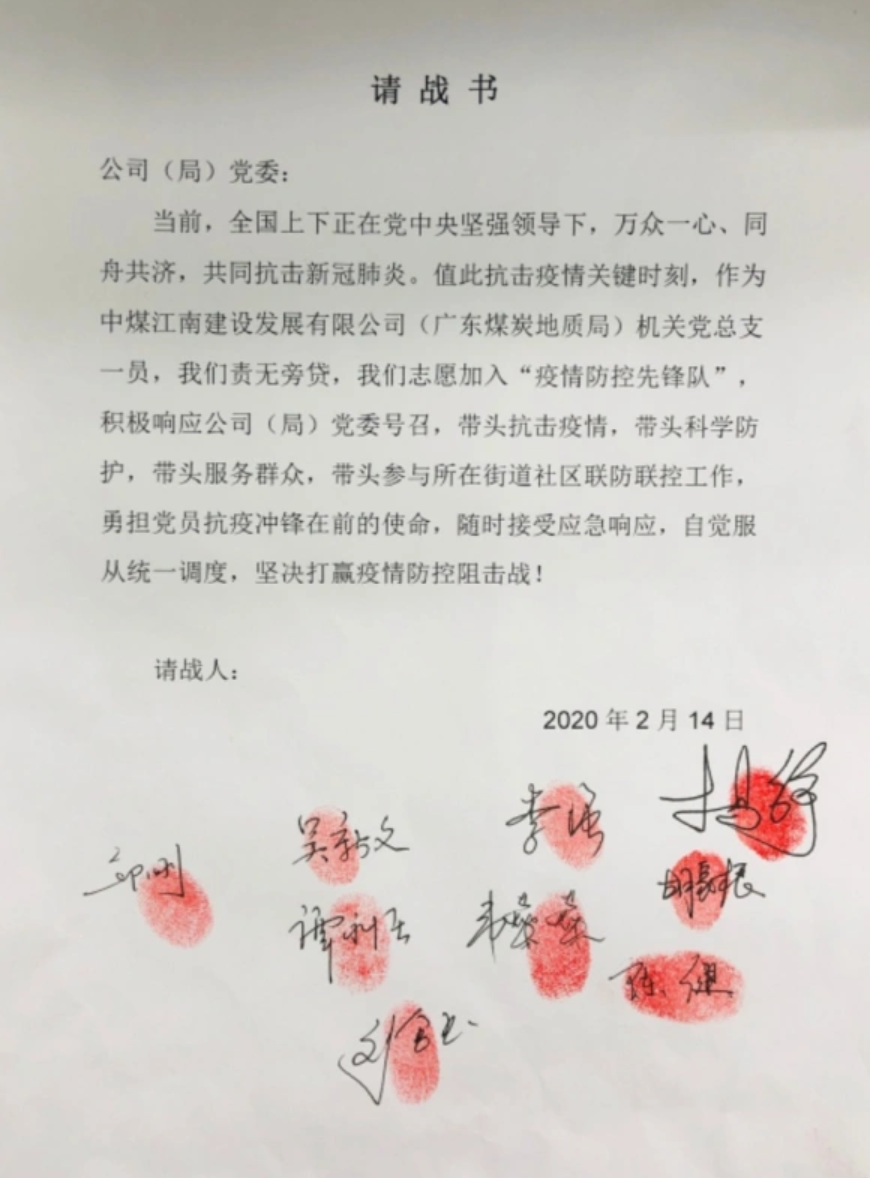 请战书
公司（局）党委：
当前，全国上下正在党中央坚强领导下，万众一心、同
舟共济，共同抗击新冠肺炎。值此抗击疫情关键时刻，作为
中煤江南建设发展有限公司（广东煤炭地质局）机关党总支
一员，我们责无旁贷，我们志愿加入“疫情防控先锋队”，
积极响应公司（局）党委号召，带头抗击疫情，带头科学防
护，带头服务群众，带头参与所在街道社区联防联控工作，
勇担党员抗疫冲锋在前的使命，随时接受应急响应，自觉服
从统一调度，坚决打赢疫情防控阻击战！
请战人：
2020年2月14日
吴新文
陈健